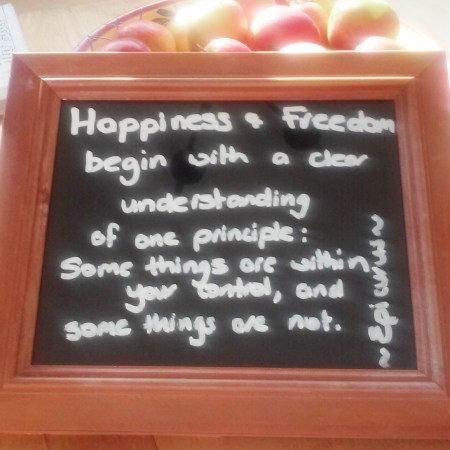 Happiness & Freedom
begin with a clear
understanding
of one principle:
Some things are within
your control, and
some things are not.
~ Epicurus ~